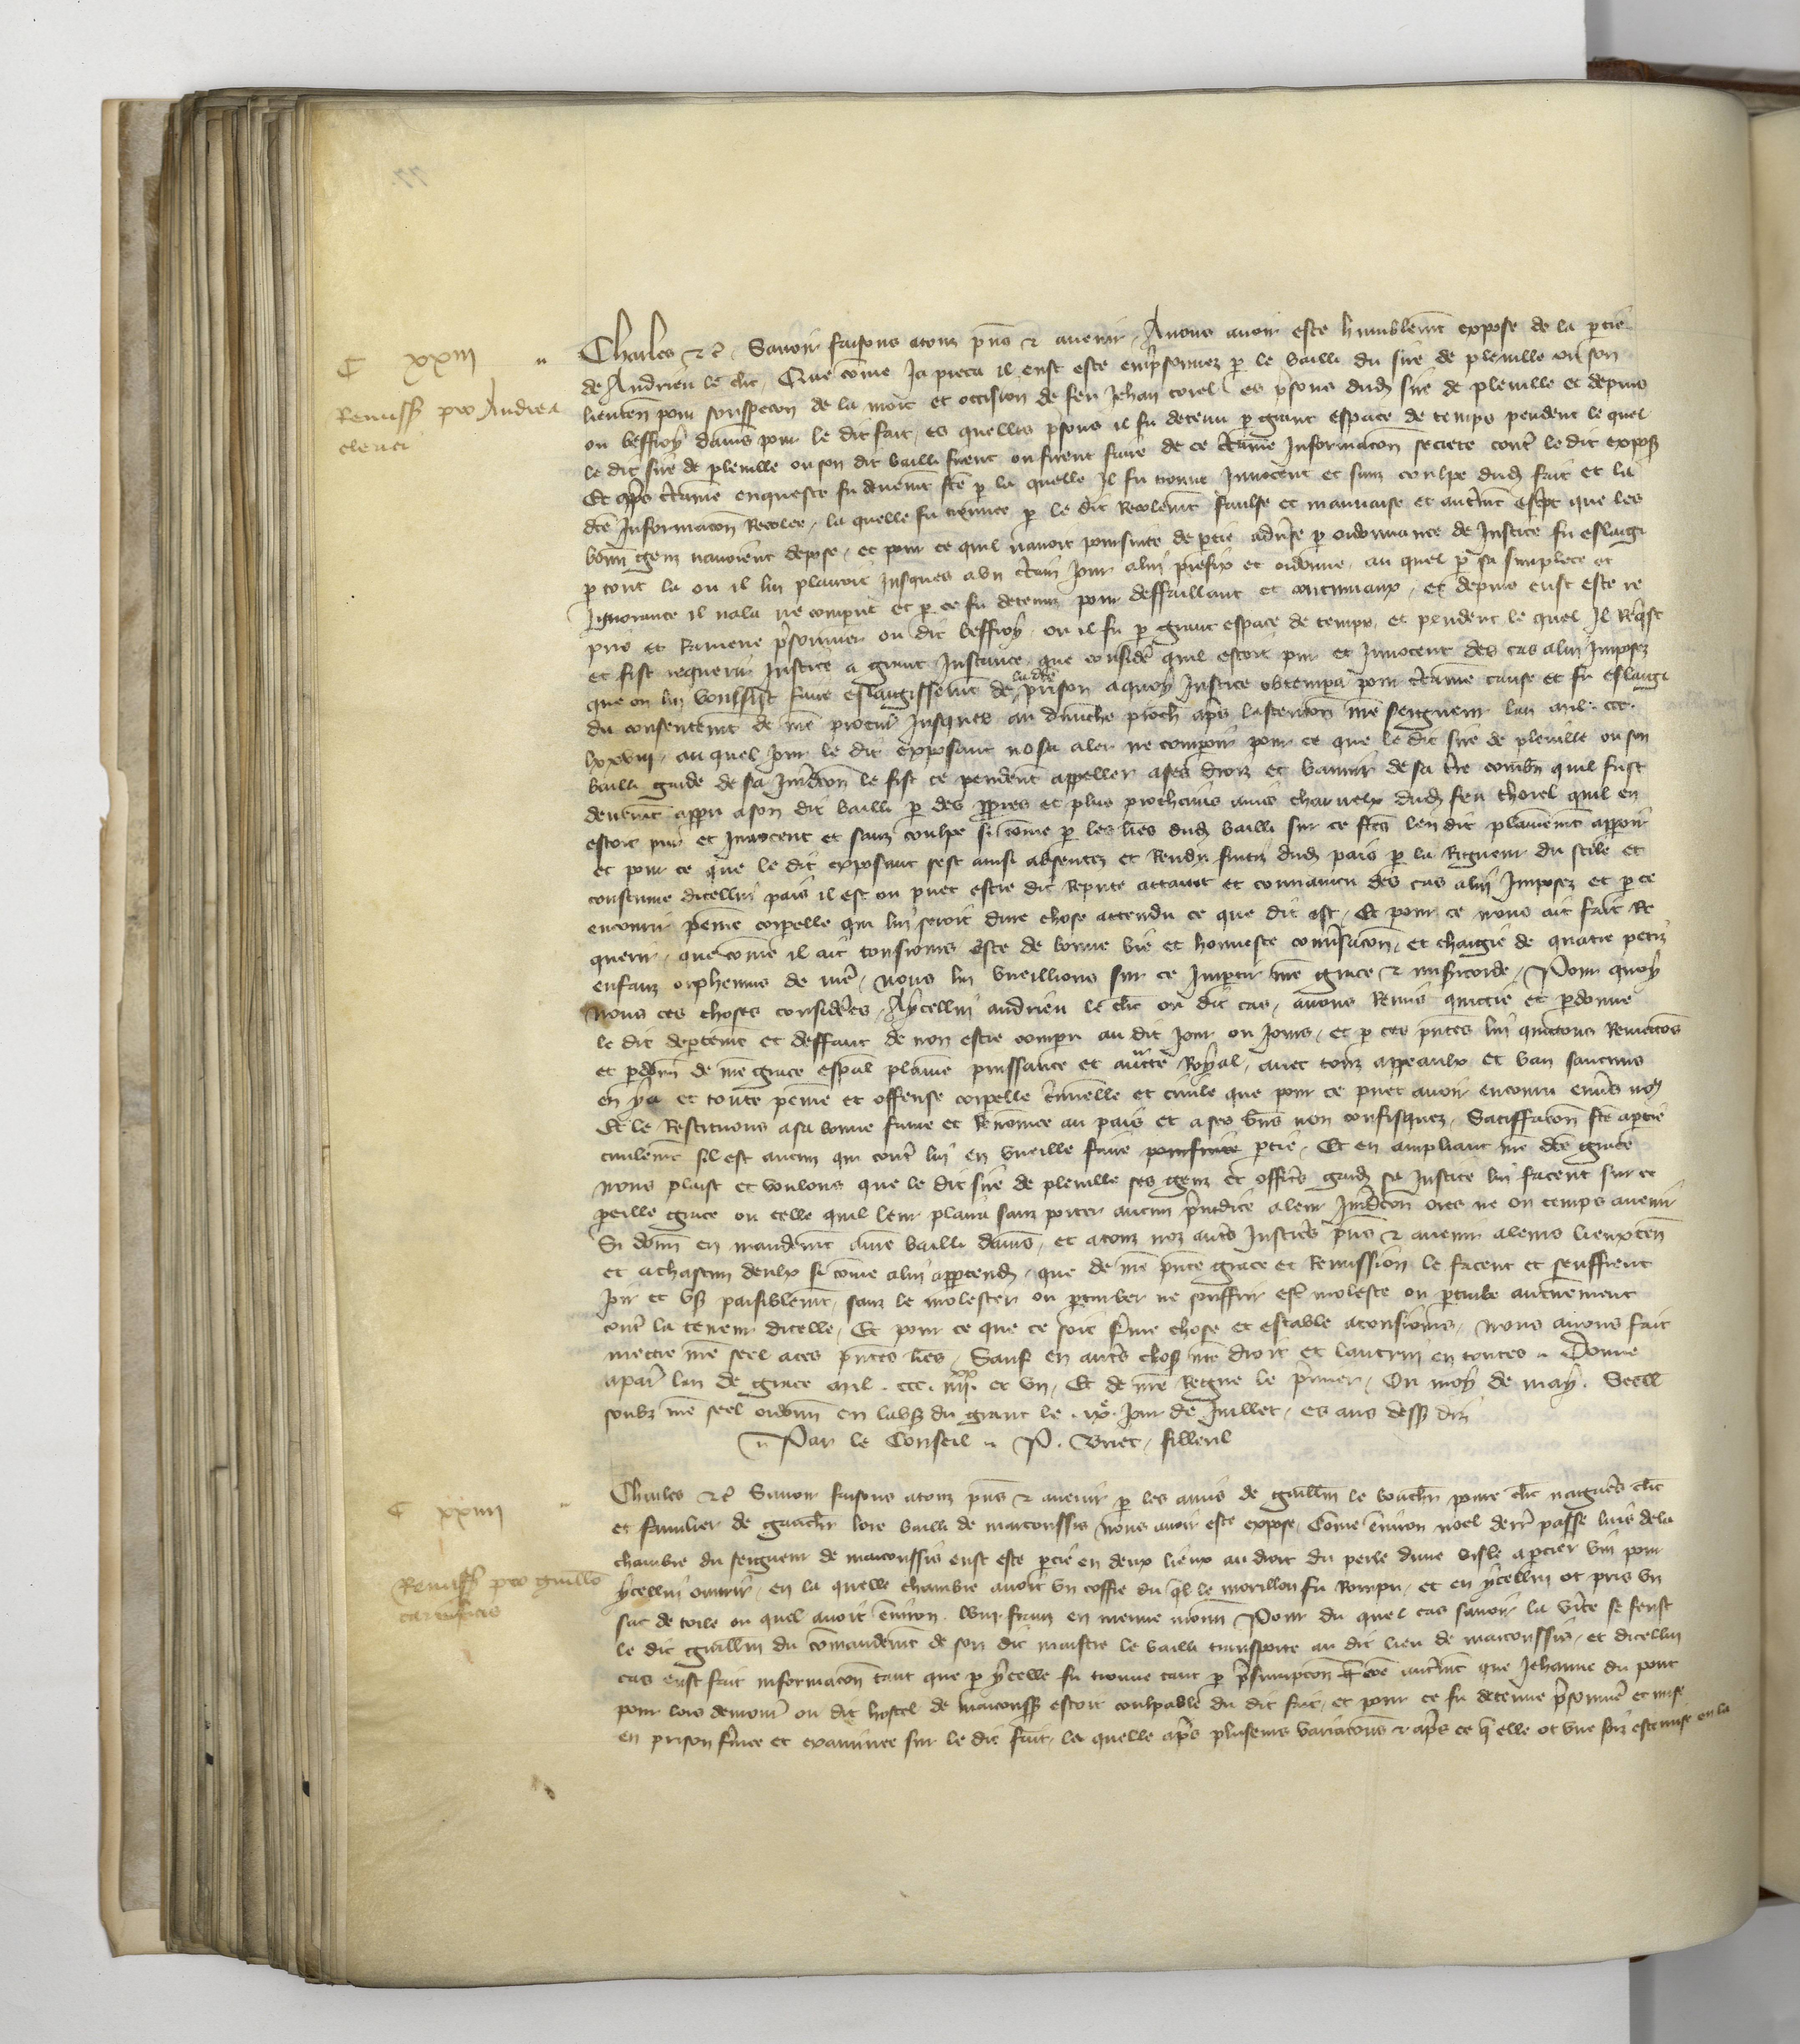 C xxiii
Remiss pro Andrea
clerici
Charles etc. Savoir faisons a touz pns et avenir, A nous avoir este humblemt expose de la partie
de Andrieu le clit, Que come Ja pieca il eust este emprisonnez par le bailli du sire de plenille ou son
lieuten pour souspecon de la mort et occision de feu Jehan torel es prisons dud sire de plenille et depuis
ou beffroy damis pour le dit fait, es quelles prisons il fu detenu par grant espace de temps pendent le quel
le dit sire de plenille ou son dit bailli firent ou firent faire de ce certaine Informacon secrete contre le dit expos
Et apres certaine enqueste fu deuemt fte par la quelle Il fu trouve Innocent et sanz coulpe dud fait et la
dte Informacon Recolee, la quelle fu trouvee par le dit Recolemt faulse et mauvaise et autremt escripte que les
bonn genz navoient depose, et pour ce quil navoit poursuite de partie adverse par ordonnance de Justice fu eslargi
par tout la ou il lui plairoit Jusques a un certain Jour a lui prefix et ordonne, au quel par sa simplece et
Ignorance il nala ne comparut et par ce fu detenuz pour deffaillant et contumaux, et depuis eust este re
pris et Ramene prisonnier ou dit beffroy, ou il fu par grant espace de temps, et pendent le quel Il Requist
et fist requerir Justice a grant Instance que consider quil estoit pur et Innocent des cas a lui Imposez
que on lui voulsist faire eslargissemt de la dte prison a quoy Justice obtempera pour certaine cause et fu eslargi
du consentemt de nre procur Jusques au dimenche proch apres lascencion nre seigneur lan mil. ccc.
lxxviii, au quel Jour le dit exposant nosa aler ne comparoir pour ce que le dit sire de plenille ou son
bailli garde de sa Juridicon le fist ce pendent appeller a ses droiz et bannir de sa tre combn quil fust
deuemt apparu a son dit bailli par des propres et plus prochains amis charnelx dud feu thorel quil en
estoit pur et Innocent et sanz coulpe si come par les lres dud bailli sur ce ftes len dit plainemt apparoir
et pour ce que le dit exposant sest ainsi absentez et Rendu fuitiz dud pais par la Rigueur du stile et
coustume dicellui pais il est ou puet estre dit Repute attaint et convaincu des cas a lui Imposez et par ce
encourir peine corpelle qui lui seroit dure chose attendu ce que dit est, Et pour ce nous ait fait Re
querir, que come il ait tousiours este de bonne vie et honneste conversacon, et chargie de quatre petiz
enfanz orphenins de mere, nous lui vueillions sur ce Impartir nre grace et misericorde, Pour quoy
nous ces choses considerees, A ycellui andrieu le clit ou dit cas, avons Remis quictie et pardonne
le dit departemt et deffaut de non estre comparu au dit Jour ou Jours, et par ces pntes lui quictons Remettons
et pardonn de nre grace espal plaine puissance et aucte Royal, avec touz appeaulx et ban saucuns
en ya et toute peine et offense corpelle criminelle et civile que pour ce puet avoir encouru envers nous
Et le Restituons a sa bonne fame et Renomee au pais et a ses biens non confisquez, Satisffacon fte a partie
civilemt sil est aucun qui contre lui en vueille faire poursuite partie, Et en ampliant nre dte grace
nous plaist et voulons que le dit sire de plenille ses genz et officrs gard sa Justice lui facent sur ce
pareille grace ou telle quil leur plaira sanz porter aucun preiudice a leur Juridicon ores ne ou temps avenir
Si donn en mandemt au bailli damis, et a touz noz autres Justicrs pns et avenir a leurs lieuxten
et a chascun deulx si come a lui appartend, que de nre pnte grace et Remission le facent et seuffrent
Joir et user paisiblemt, sanz le molester ou partuber ne souffrir estre moleste ou partube aucunement
contre la teneur dicelle, Et pour ce que ce soit ferme chose et estable a tousiours, nous avons fait
mettre nre seel a ces pntes lres, Sauf en autres choses nre droit et lautrui en toutes. Donne
a paris lan de grace mil. ccc. iiiixx et un, Et de nre Regne le premier, Ou moys de may. Seell
soubz nre seel ordonn en labsence du grant le. ixe. Jour de Juillet, es ans dess diz
Par le Conseil. P. Briet, filleul
C xxiiii
Remiss pro guillo
carnificis
Charles etc Savoir faisons a touz pns et avenir par les amis de guillm le bouchr povre clit nagueres clit
et familier de gauchr lore bailli de marcoussis nous avoir este expose, Come environ noel derr passe luis de la
chambre du seigneur de marcoussis eust este percie en deux lieux au droit du perle dune visle a percier vin pour
ycellui ouvrir, en la quelle chambre avoit un coffre du quel le morillon fu Rompu, et en ycellui ot pris un
sac de toile ou quel avoit environ. lviii frans en menue monn Pour du quel cas savoir la verite se feust
le dit guillm du comandemt de son dit maistre le bailli transporte au dit lieu de marcoussis, et dicellui
cas eust fait informacon tant que par ycelle fu trouve tant par presumpcon autremt que Jehanne du pont
pour lors demour ou dit hostel de marcouss estoit coulpable du dit fait, et pour ce fu detenue prisonniere et mise
en prison fermee et examinee sur le dit fait, la quelle apres plusieurs variacons et apres ce quelle ot une foiz este mise en la